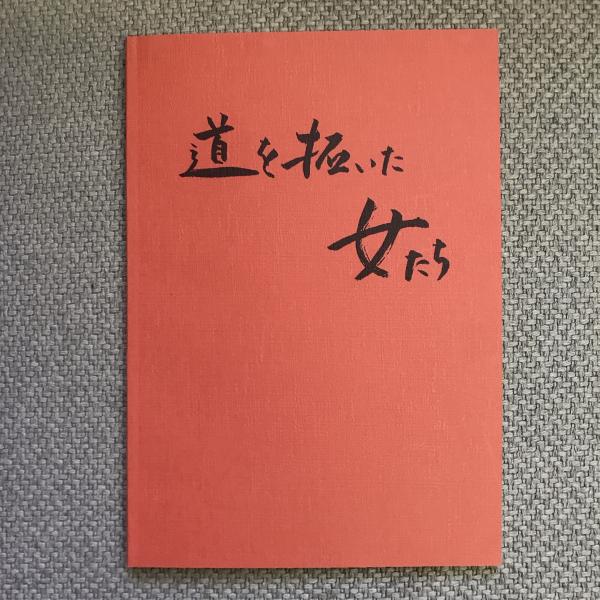 道を拓いた
女たち